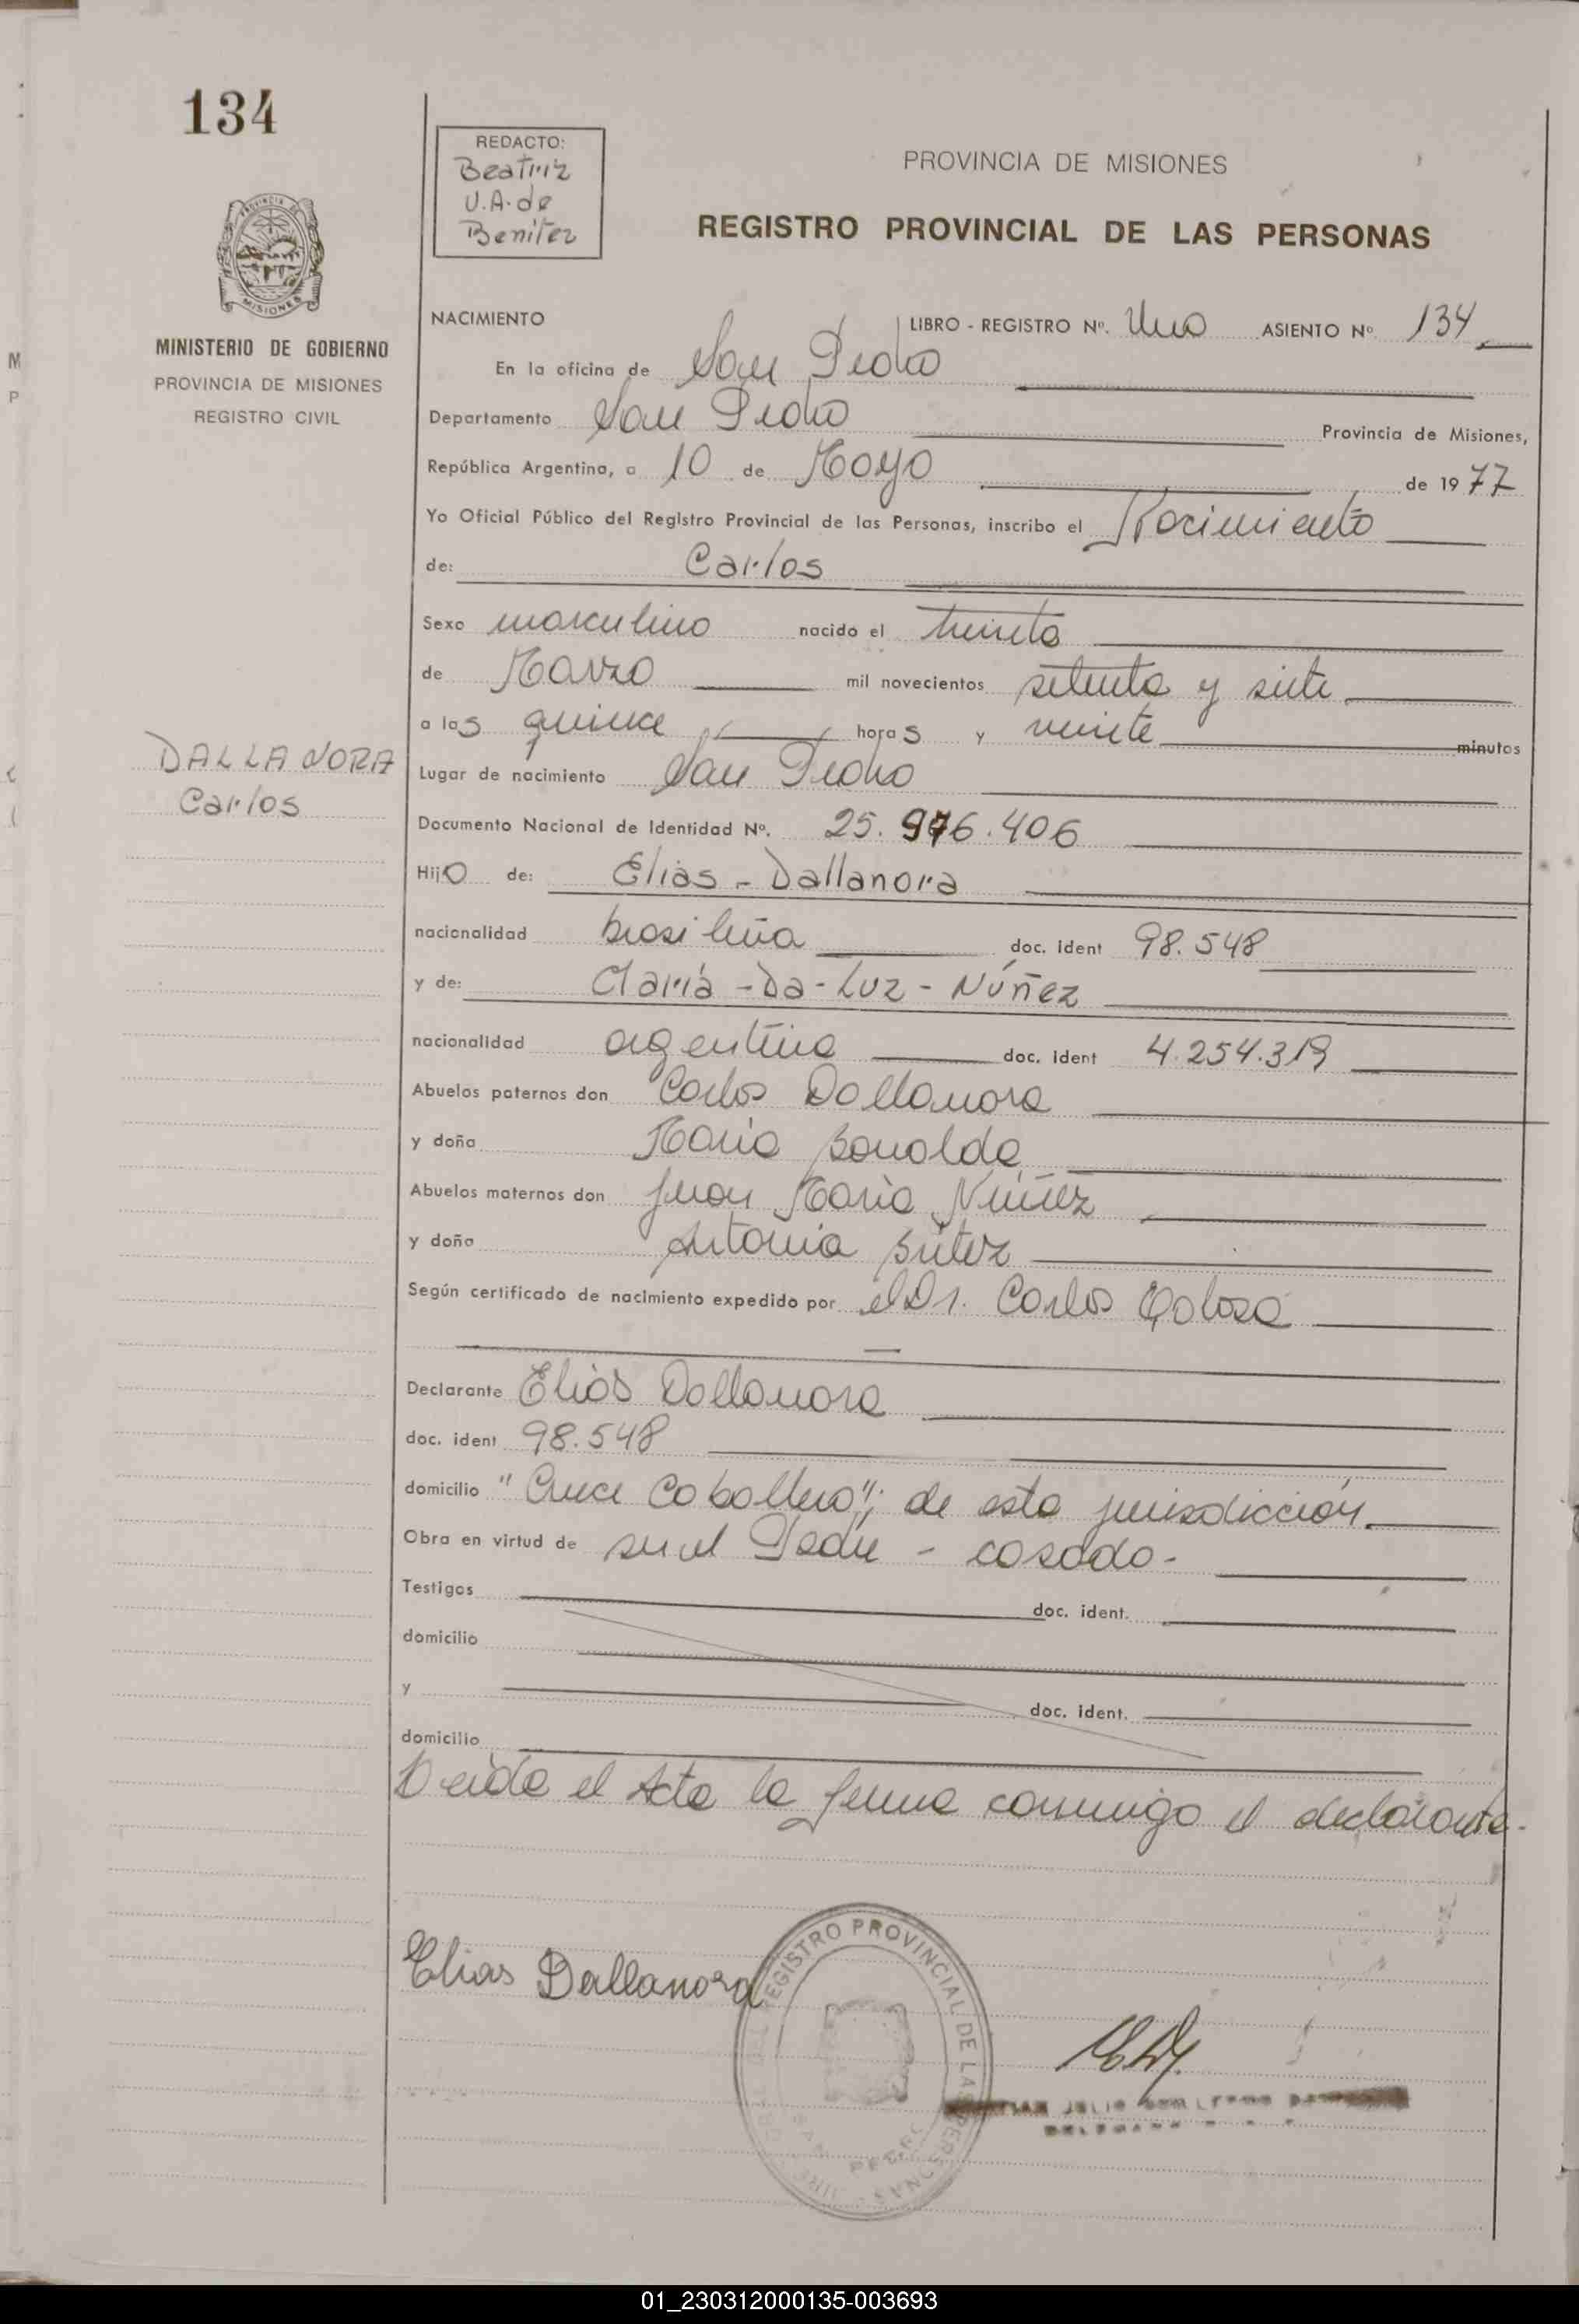 134
REDACTO:
Beatriz
V.A. de
Benitez
PROVINCIA DE MISIONES
REGISTRO PROVINCIAL DE LAS PERSONAS
MINISTERIO DE GOBIERNO
PROVINCIA DE MISIONES
REGISTRO CIVIL
NACIMIENTO LIBRO - REGISTRO Nº. Uno ASIENTO Nº 134
En la oficina de San Pedro
Departamento San Pedro Provincia de Misiones,
República Argentina, a 10 de Mayo de 1977
Yo Oficial Público del Registro Provincial de las Personas, inscribo el Nacimiento
de: Carlos
Sexo masculino nacido el treinta
de Marzo mil novecientos setenta y siete
a las quince horas y veinte minutos
DALLANORA
Carlos
Lugar de nacimiento San Pedro
Documento Nacional de Identidad Nº. 25.976.406
Hijo de: Elias - Dallanora
nacionalidad brasileña doc. ident 98.548
y de: María - Da - Luz - Núñez
nacionalidad argentina doc. ident 4.254.319
Abuelos paternos don Carlos Dallanora
y doña María
Abuelos maternos don Juan María Núñez
y doña Antonia
Según certificado de nacimiento expedido por el Dr. Carlos
Declarante Elías Dallanora
doc. ident 98.548
domicilio "Cruce Caballero", de esta jurisdicción
Obra en virtud de ser el Padre - casado -
Testigos doc. ident.
domicilio
y doc. ident.
domicilio
Leída el Acta la firma conmigo el declarante.
Elias Dallanora
REGISTRO PROVINCIAL DE LAS PERSONAS
SAN PEDRO
JULIO
01_230312000135-003693